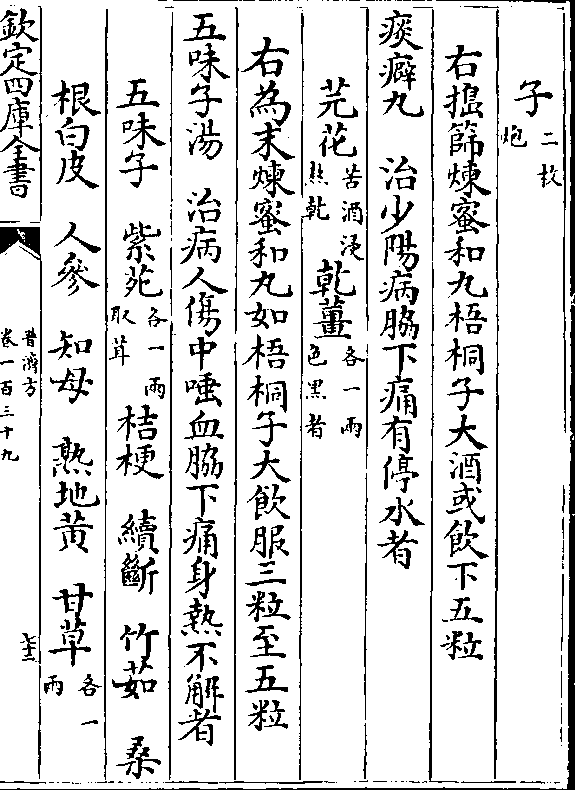 子二枚炮
右搗篩煉蜜和丸梧桐子大酒或飲下五粒
痰癖丸　治少陽病脇下痛有停水者
芫花苦酒浸熬乾　乾薑各一兩色黑者
右為末煉蜜和丸如梧桐子大飲服三粒至五粒
五味子湯　治病人傷中唾血脇下痛身熱不解者
五味子　紫苑各一兩取茸　桔梗　續斷　竹茹　桑
根白皮　人參　知母　熟地黃　甘草各一兩
欽定四庫全書
普濟方
卷一百三十九